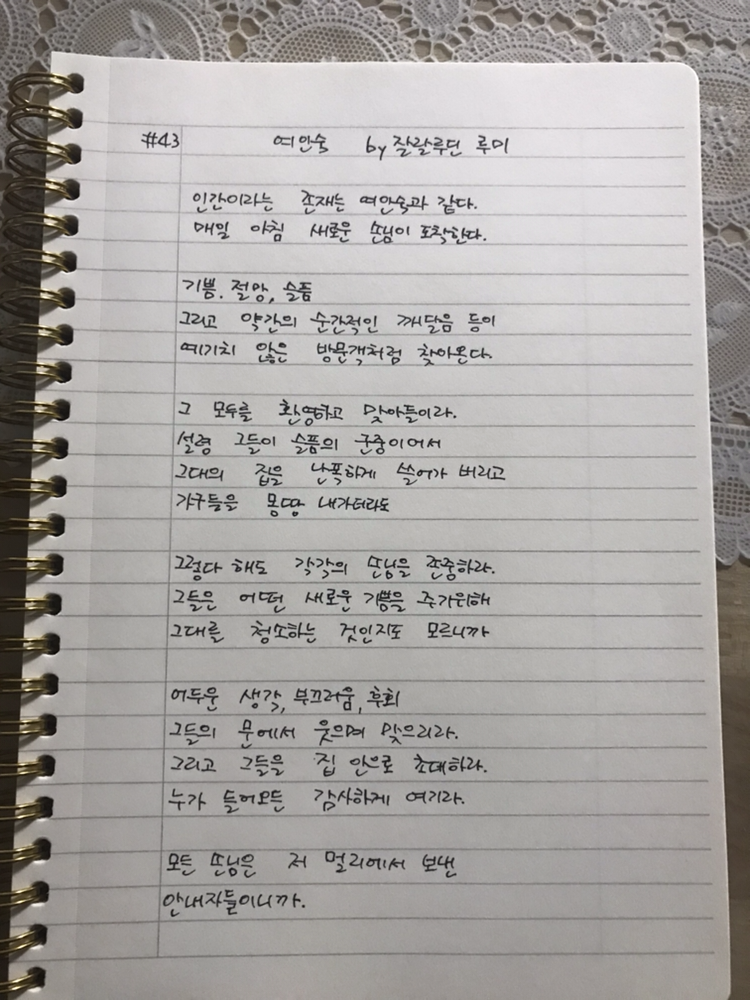 #43 여인숙 by 잘랄루딘 루미
인간이라는 존재는 여인숙과 같다.
매일 아침 새로운 손님이 도착한다.
기쁨. 절망, 슬픔
그리고 약간의 순간적인 깨달음 등이
예기치 않은 방문객처럼 찾아온다.
그 모두를 환영하고 맞아들이라.
설령 그들이 슬픔의 군중이어서
그대의 집을 난폭하게 쓸어가 버리고
가구들을 몽땅 내가더라도
그렇다 해도 각각의 손님을 존중하라.
그들은 어떤 새로운 기쁨을 주기위해
그대를 청소하는 것인지도 모르니까
어두운 생각, 부끄러움, 후회
그들의 문에서 웃으며 맞으리라.
그리고 그들을 집 안으로 초대하라.
누가 들어오든 감사하게 여기라.
모든 손님은 저 멀리에서 보낸
안내자들이니까.